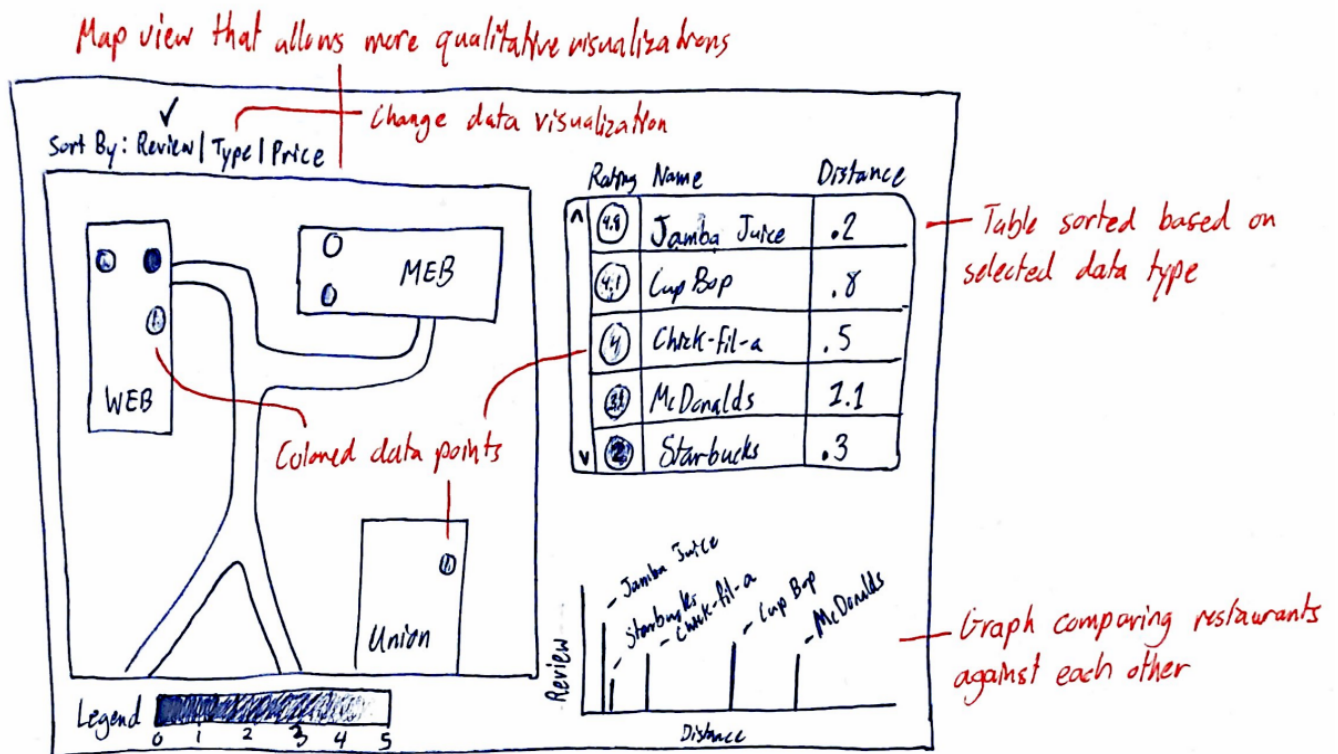 Map view that allows more qualitative visualizations
Change data visualization
Sort By: Review | Type | Price
WEB
MEB
Union
Colored data points
Legend
0 1 2 3 4 5
Rating Name Distance
4.8 Jamba Juice .2
4.1 Cup Bop .8
4 Chick-fil-a .5
McDonalds 1.1
2 Starbucks .3
Table sorted based on
selected data type
Jamba Juice
Starbucks
Chick-fil-a
Cup Bop
McDonalds
Review
Distance
Graph comparing restaurants
against each other